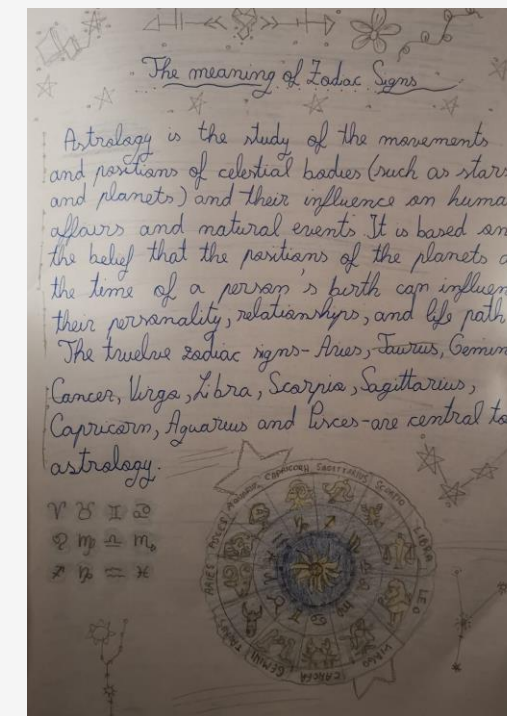 The meaning of Zodac Signs
Astrology is the study of the movements
and positions of celestial bodies (such as stars
and planets) and their influence on huma
affairs and natural events. It is based on
the belief that the positions of the planets a
the time of a person's birth can influen
their personality, relationships, and life path
The twelve zodiac signs - Aries, Taurus, Gemin
Cancer, Virgo, Libra, Scorpio, Sagittarius,
Capricorn, Aquarius and Pisces - are central to
astrology.
♈ ♉ ♊ ♋
♌ ♍ ♎ ♏
♐ ♑ ♒ ♓
CAPRICORN
SAGITTARIUS
SCORPIO
LIBRA
LEO
VIRGO
CANCER
GEMINI
TAURUS
ARIES